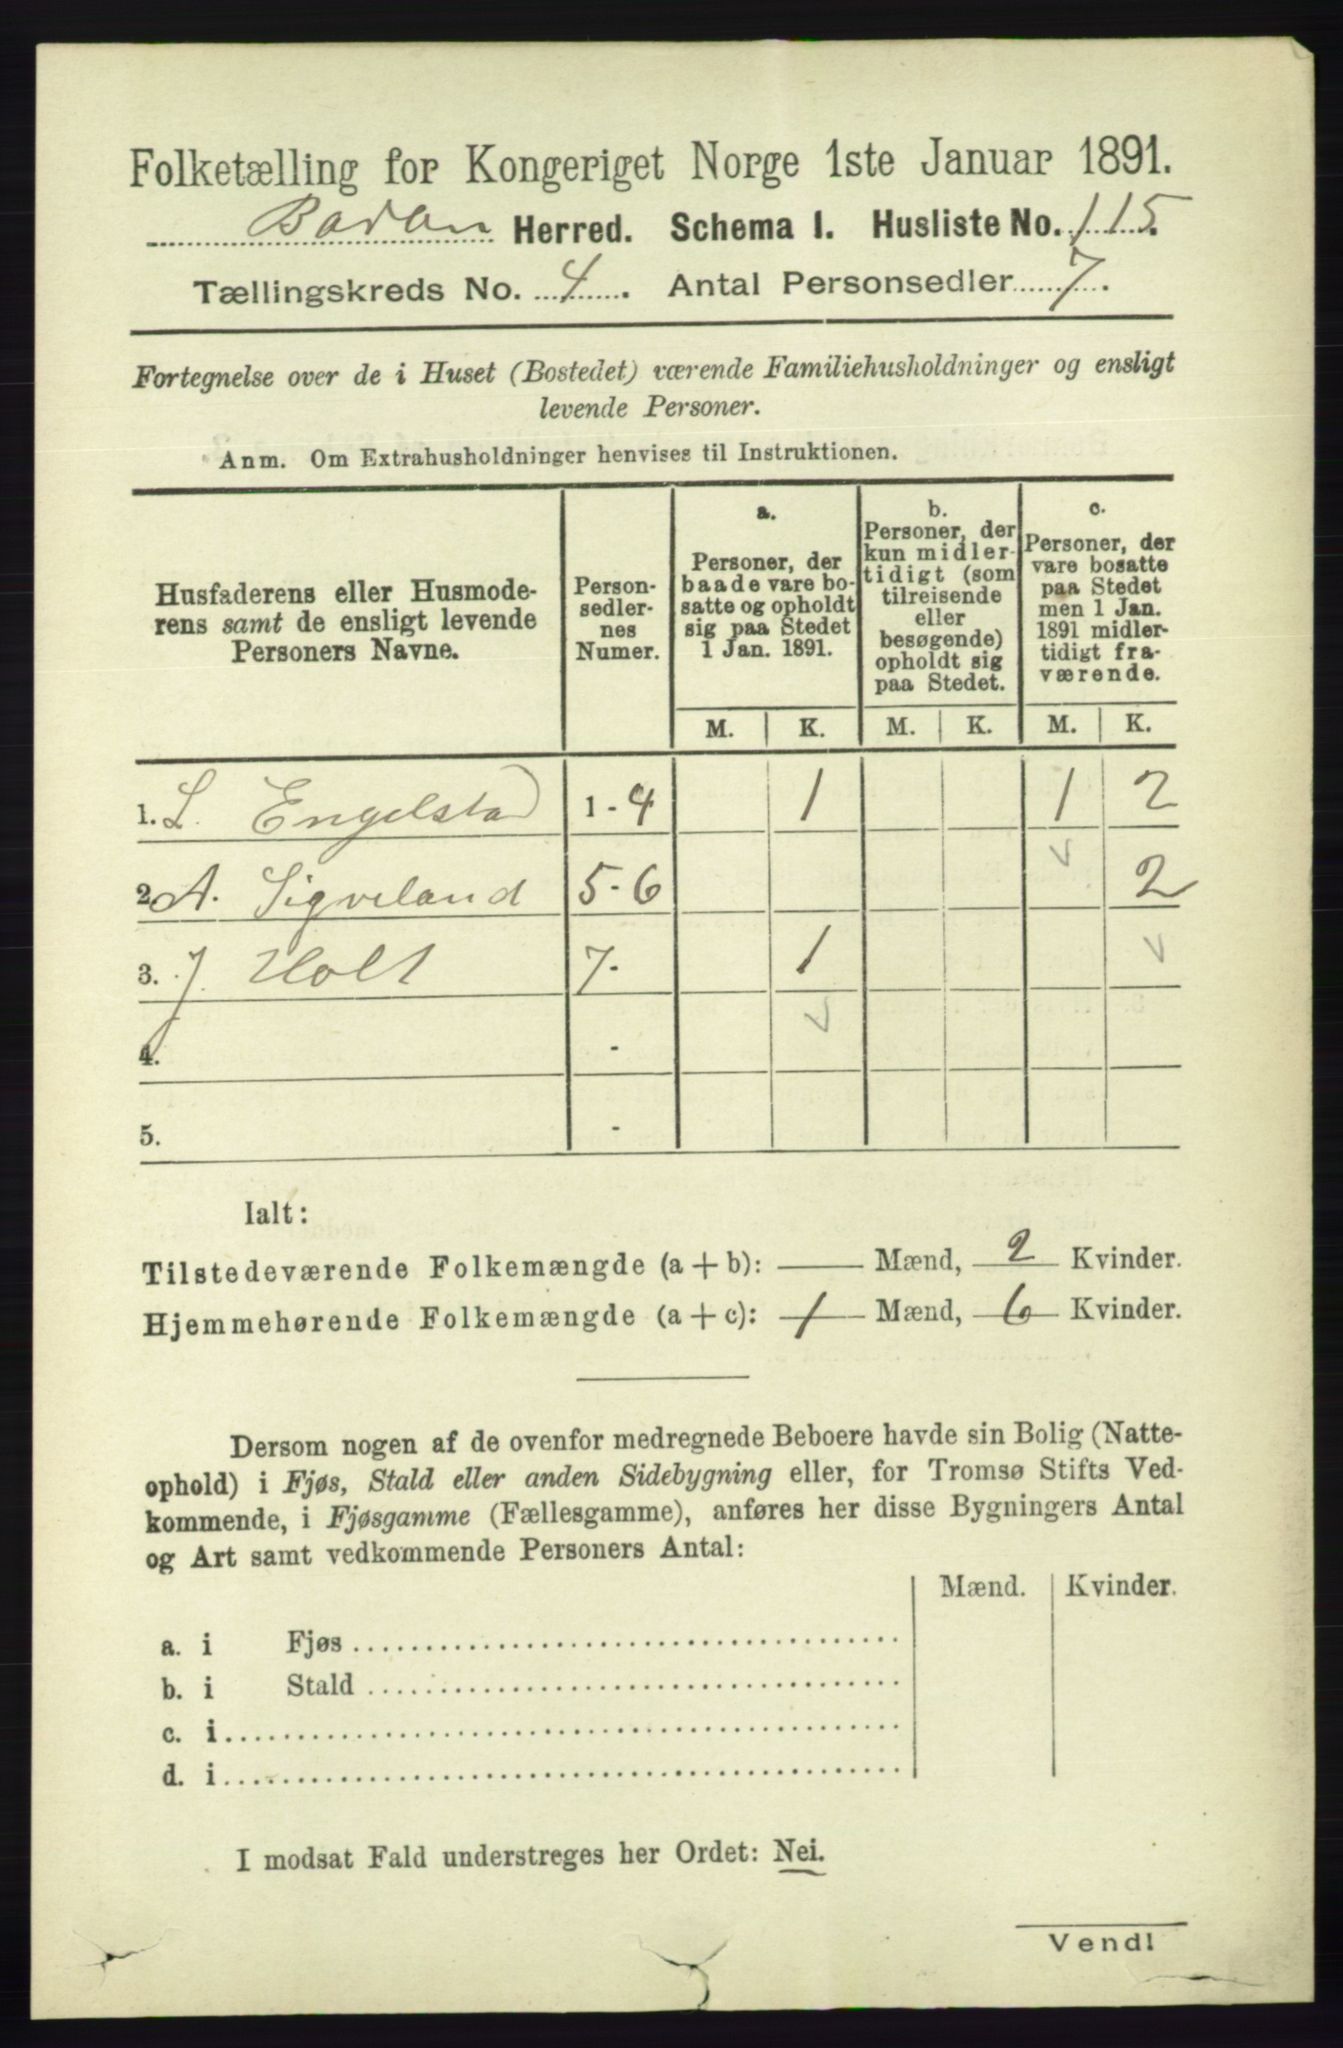 Folketælling for Kongeriget Norge 1ste Januar 1891.
Herred. Schema 1. Husliste No. 115.
Tællingskreds No. 4. Antal Personsedler 7.
Fortegnelse over de i Huset (Bostedet) værende Familiehusholdninger og ensligt
levende Personer.
Anm. Om Extrahusholdninger henvises til Instruktionen.
Husfaderens eller Husmode-
rens samt de ensligt levende
Personers Navne.
Person-
sedler-
nes
Numer.
a.
Personer, der
baade vare bo-
satte og opholdt
sig paa Stedet
1 Jan. 1891.
b.
Personer, der
kun midler-
tidigt (som
tilreisende
eller
besøgende)
opholdt sig
paa Stedet.
c.
Personer, der
vare bosatte
paa Stedet
men 1 Jan.
1891 midler-
tidigt fra-
værende.
M. K. M. K. M. K.
1. L. Engelstad 1-4 1 1 2
2. A. Sigveland 5-6 2
3. J. Holt 7- 1
4. -
5. -
Ialt:
Tilstedeværende Folkemængde (a + b): — Mænd, 2 Kvinder.
Hjemmehørende Folkemængde (a + c): 1 Mænd, 6 Kvinder.
Dersom nogen af de ovenfor medregnede Beboere havde sin Bolig (Natte-
ophold) i Fjøs, Stald eller anden Sidebygning eller, for Tromsø Stifts Ved-
kommende, i Fjøsgamme (Fællesgamme), anføres her disse Bygningers Antal
og Art samt vedkommende Personers Antal:
Mænd. Kvinder.
a. i Fjøs
b. i Stald
c. i
d. i
I modsat Fald understreges her Ordet: Nei.
Vend!